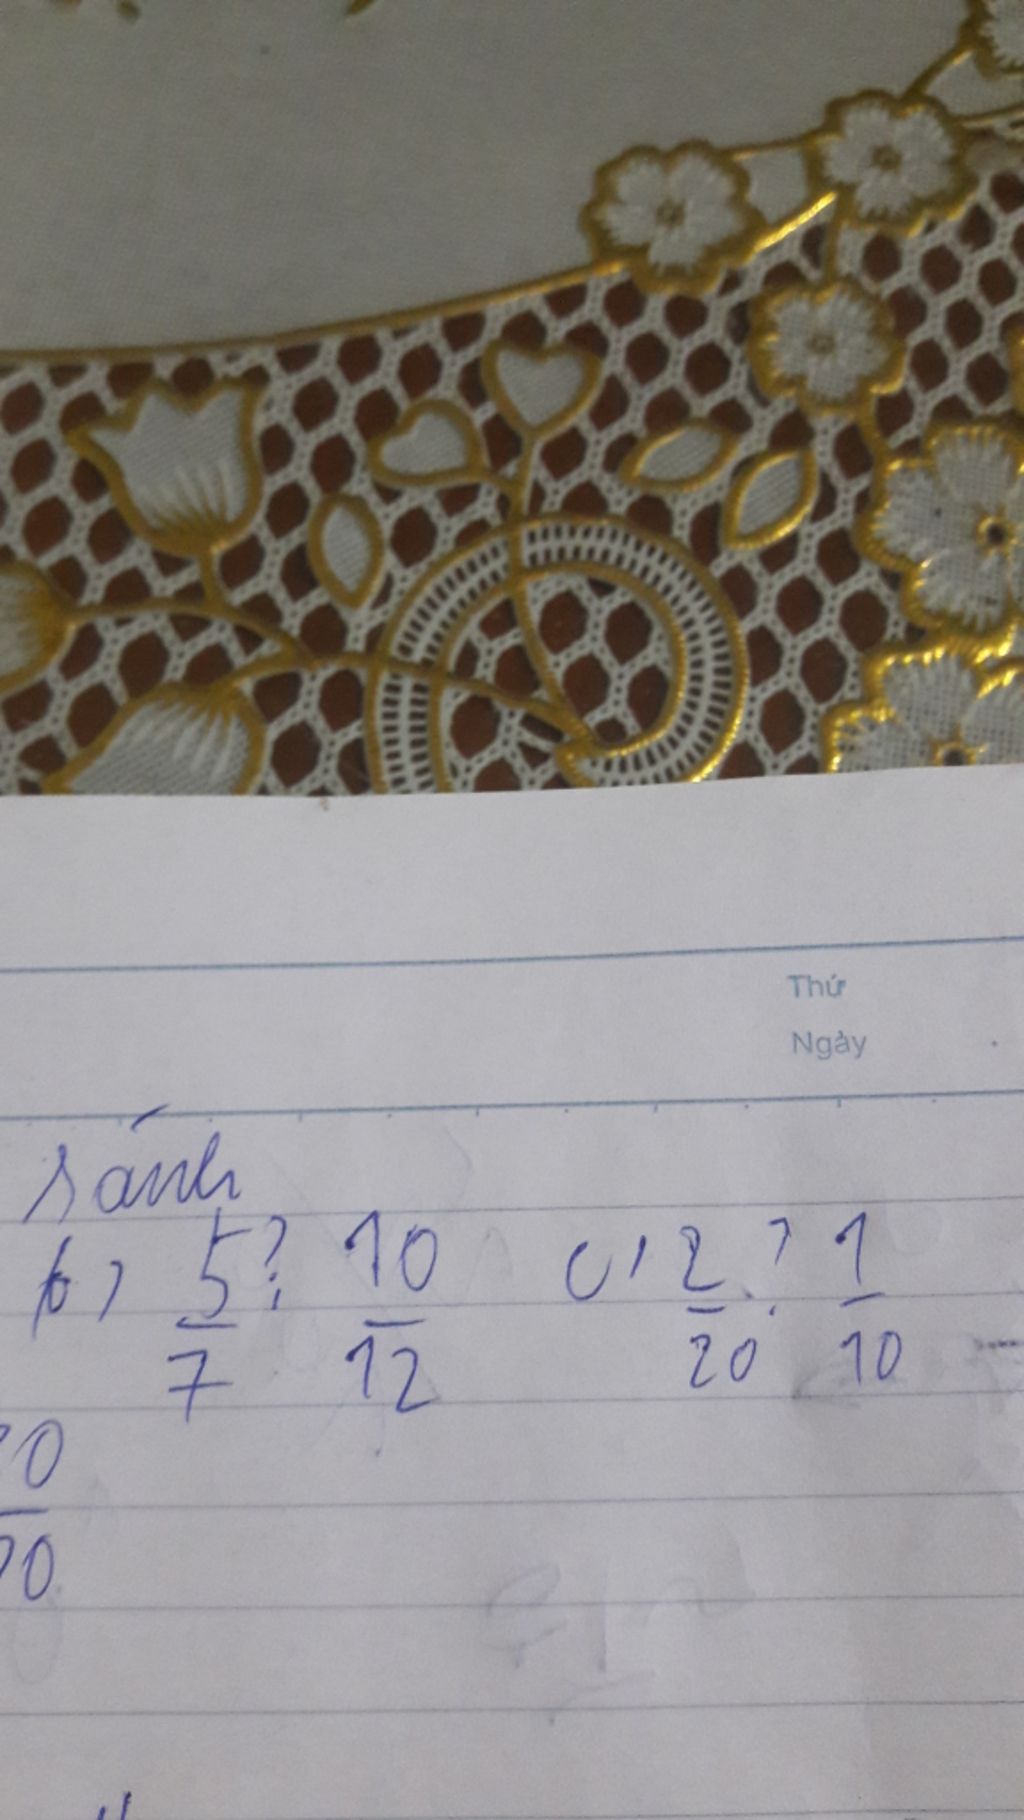 Thứ
Ngày
sánh
b) 5/7 ? 10/12 c) 2/20 ? 1/10